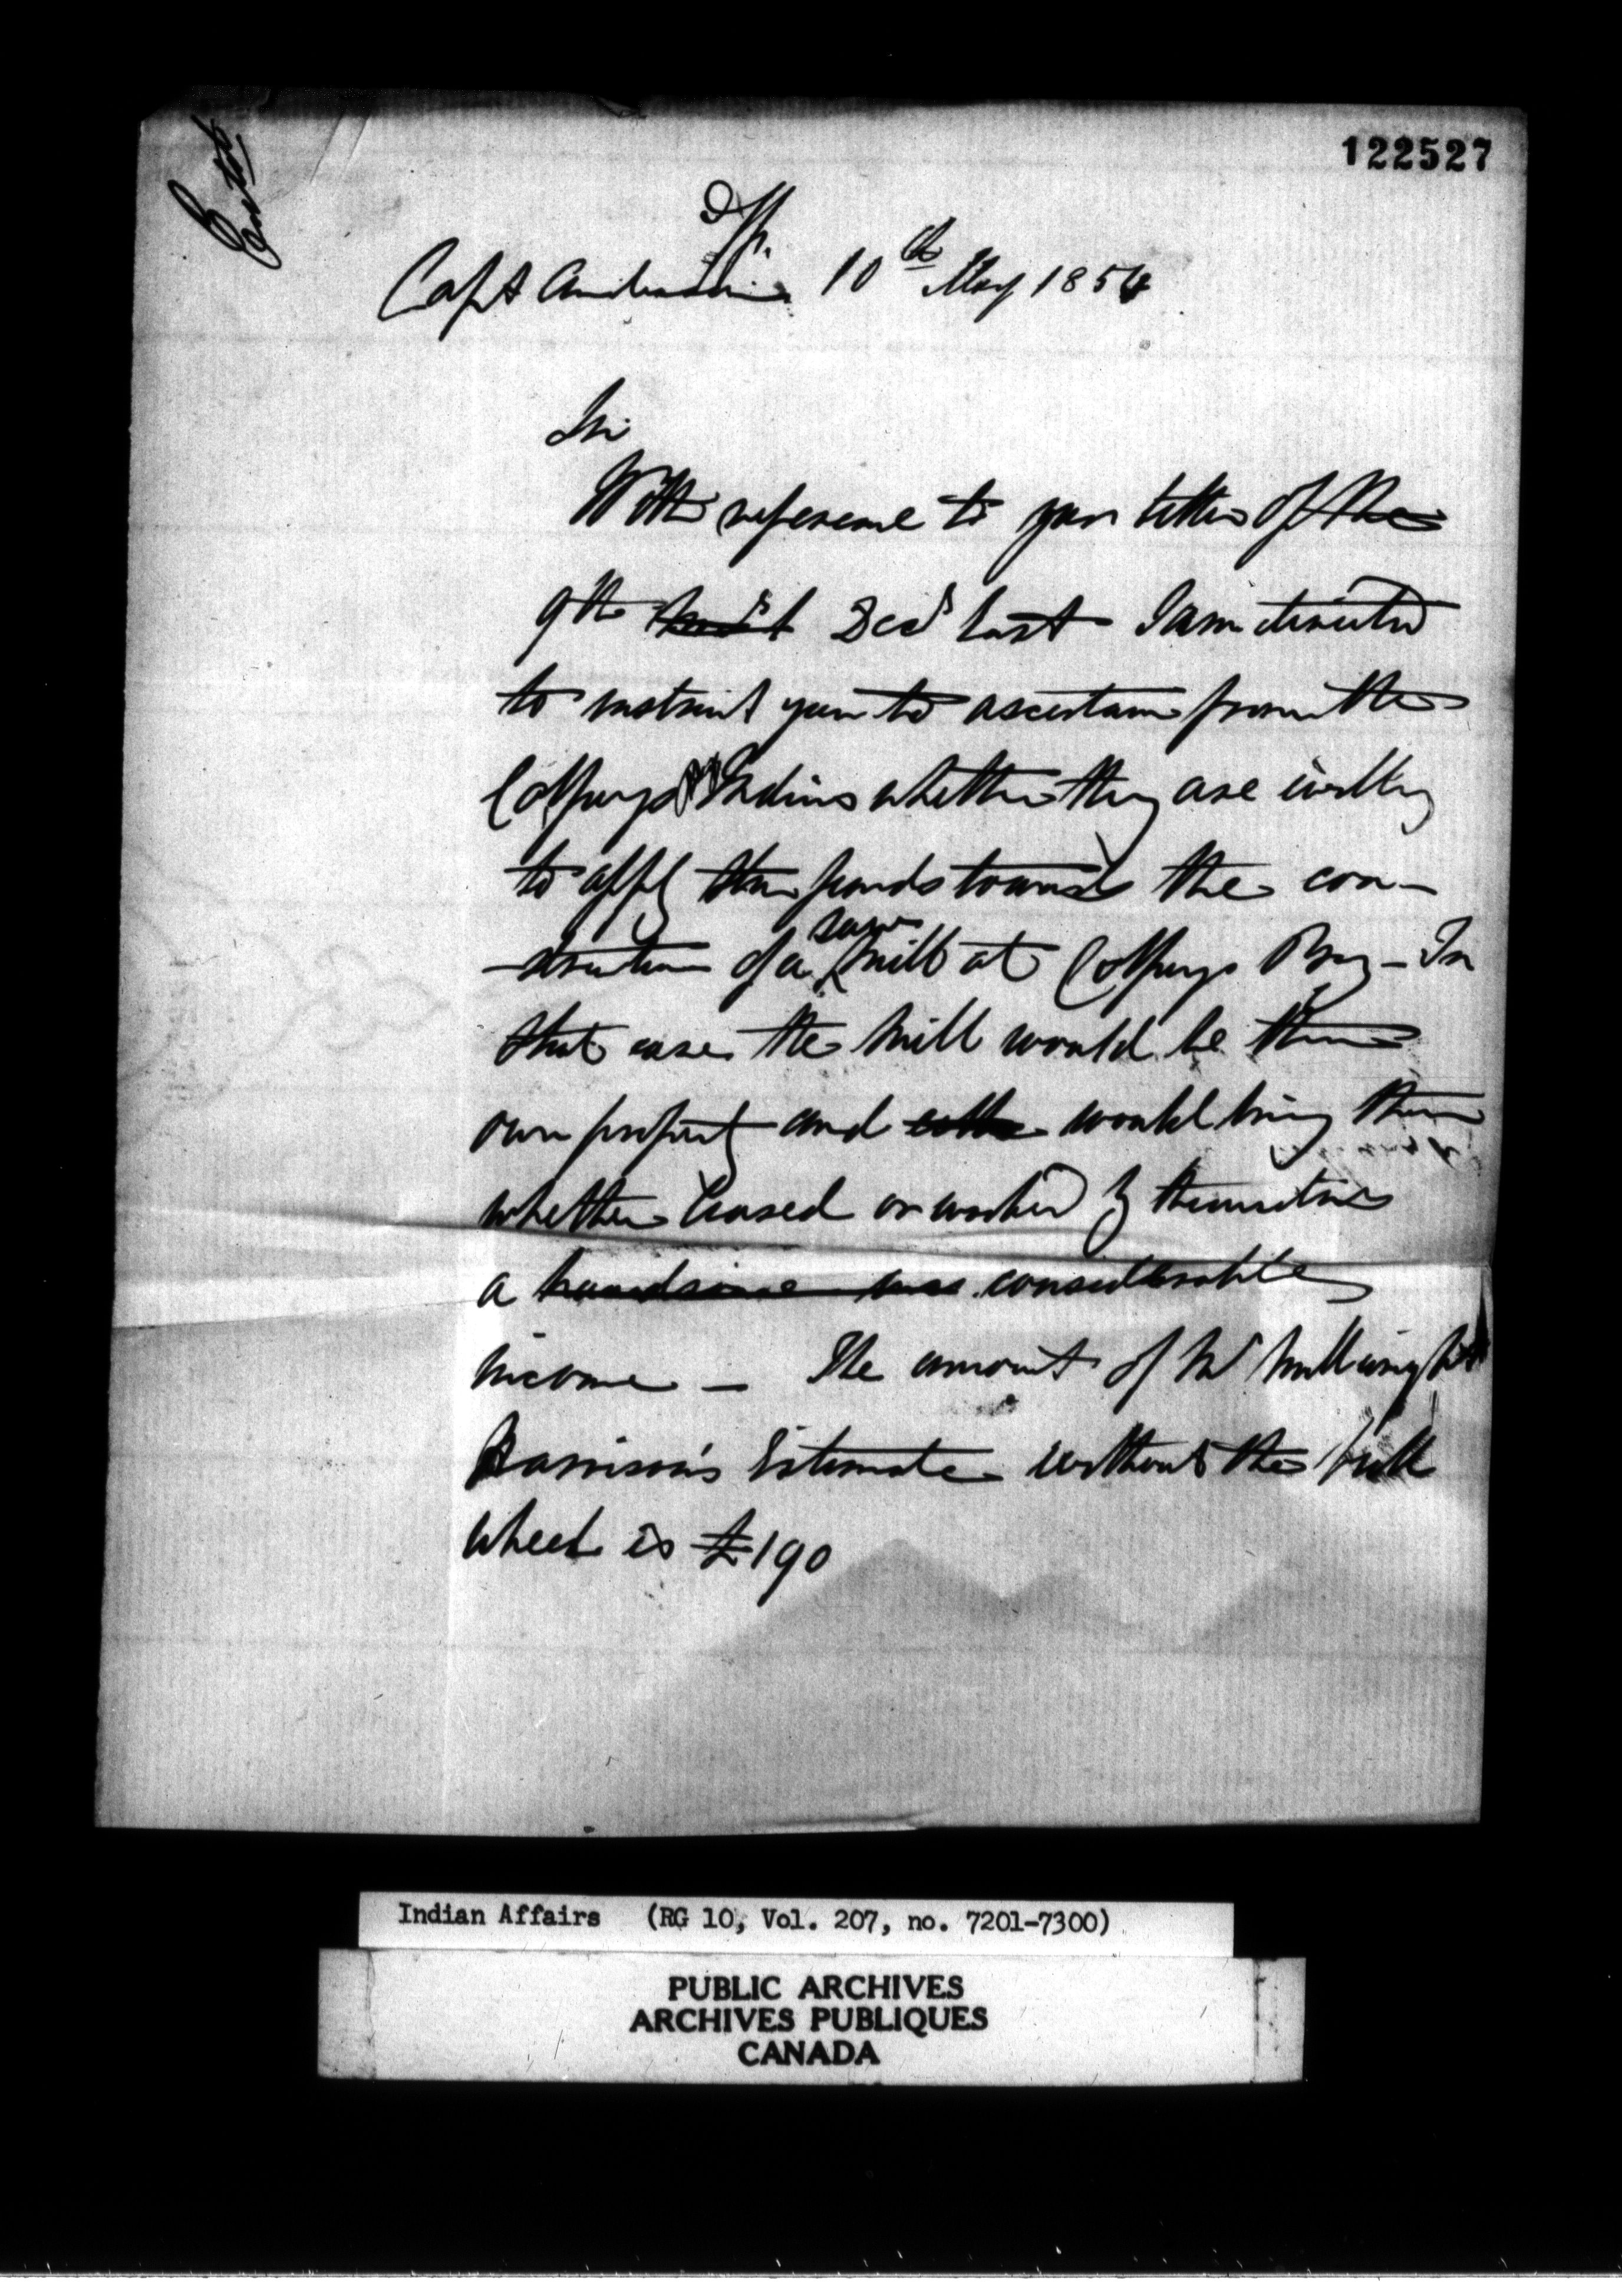 122527
Entd
Dft.
Capt Anderson 10th May 1854
Sir
With reference to your letter of the
9th Decr last I am directed
to instruct you to ascertain from the
Colpoys Indians whether they are willing
to apply their funds towards the con-
-struction of a saw mill at Colpoys Bay - In
that case the mill would be their
own property and would bring them
whether leased or worked by themselves
a handsome considerable
income - The amount of Mr Millwright
Harrison's Estimate without the
wheel is £190
Indian Affairs (RG 10, Vol. 207, no. 7201-7300)
PUBLIC ARCHIVES
ARCHIVES PUBLIQUES
CANADA